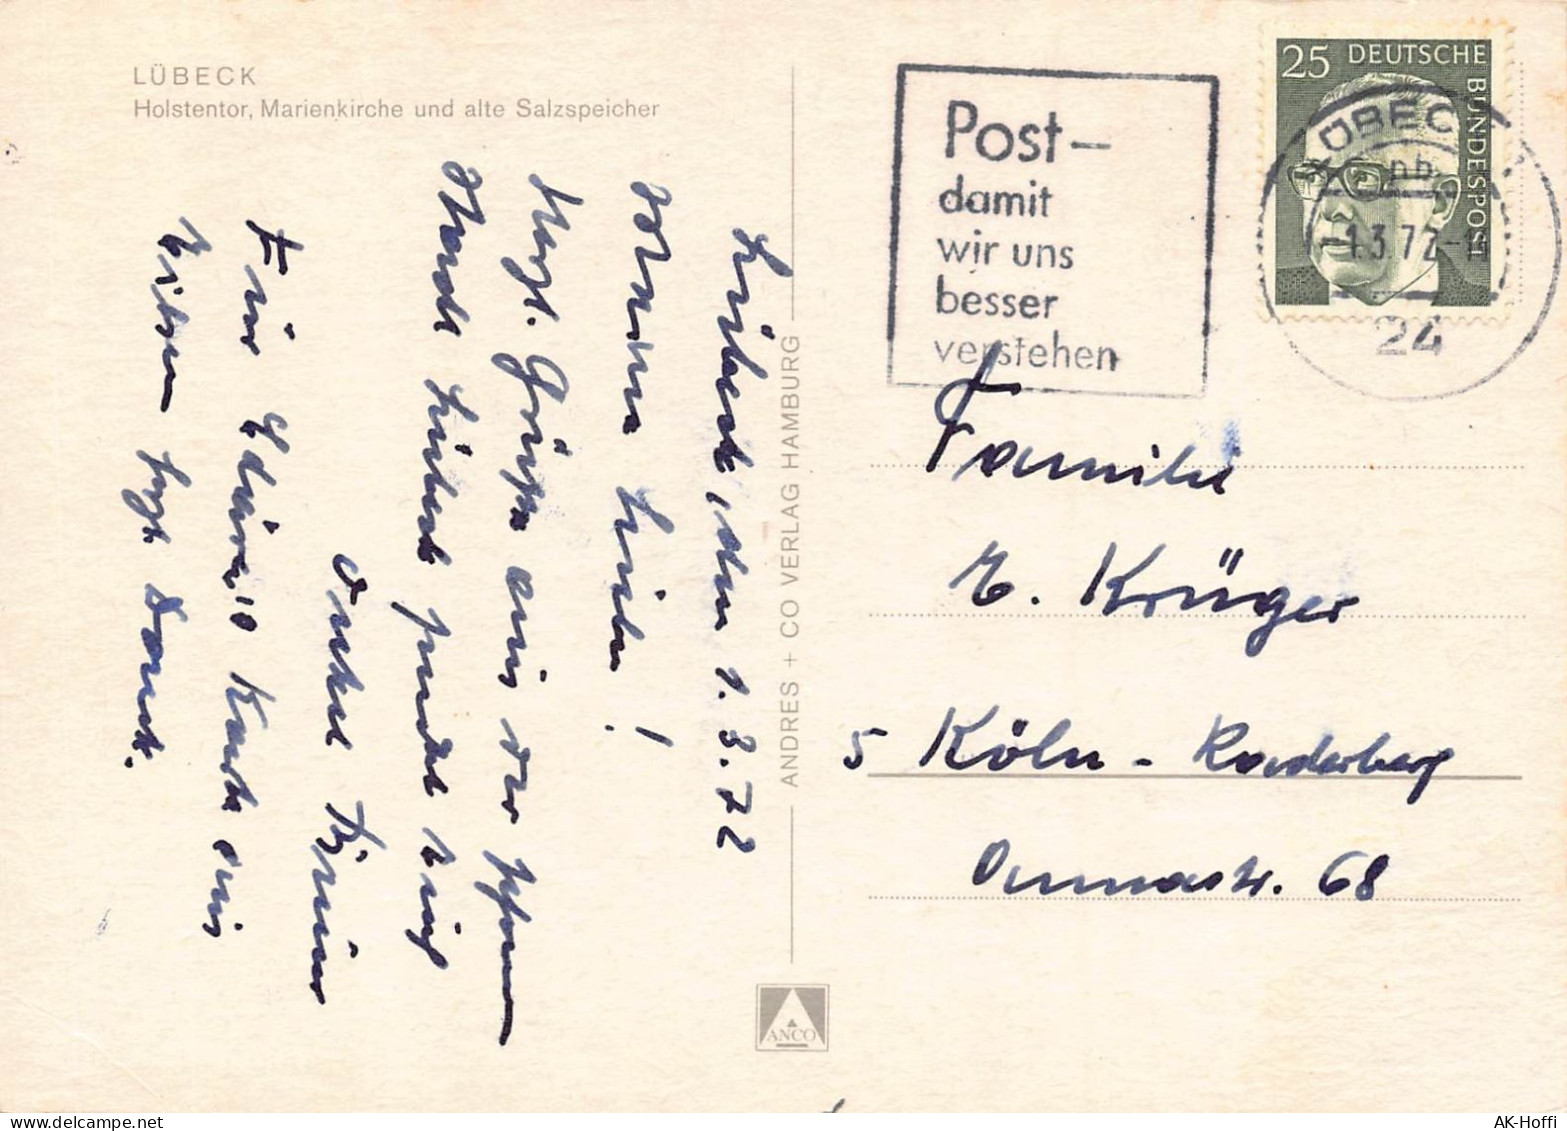 LÜBECK
Holstentor, Marienkirche und alte Salzspeicher
Lübeck, den 1.3.72
Meine Lieben!
Herzl. Grüße aus der schönen
Stadt Lübeck sendet Euch
Onkel
Für Karte aus
herzl. Dank.
ANDRES + CO VERLAG HAMBURG
ANCO
Post-
damit
wir uns
besser
verstehen
25 DEUTSCHE BUNDESPOST
LÜBECK
-1.3.72-
24
Familie
E. Krüger
5 Köln - Raderberg
Annastr. 68
AK-Hoffi